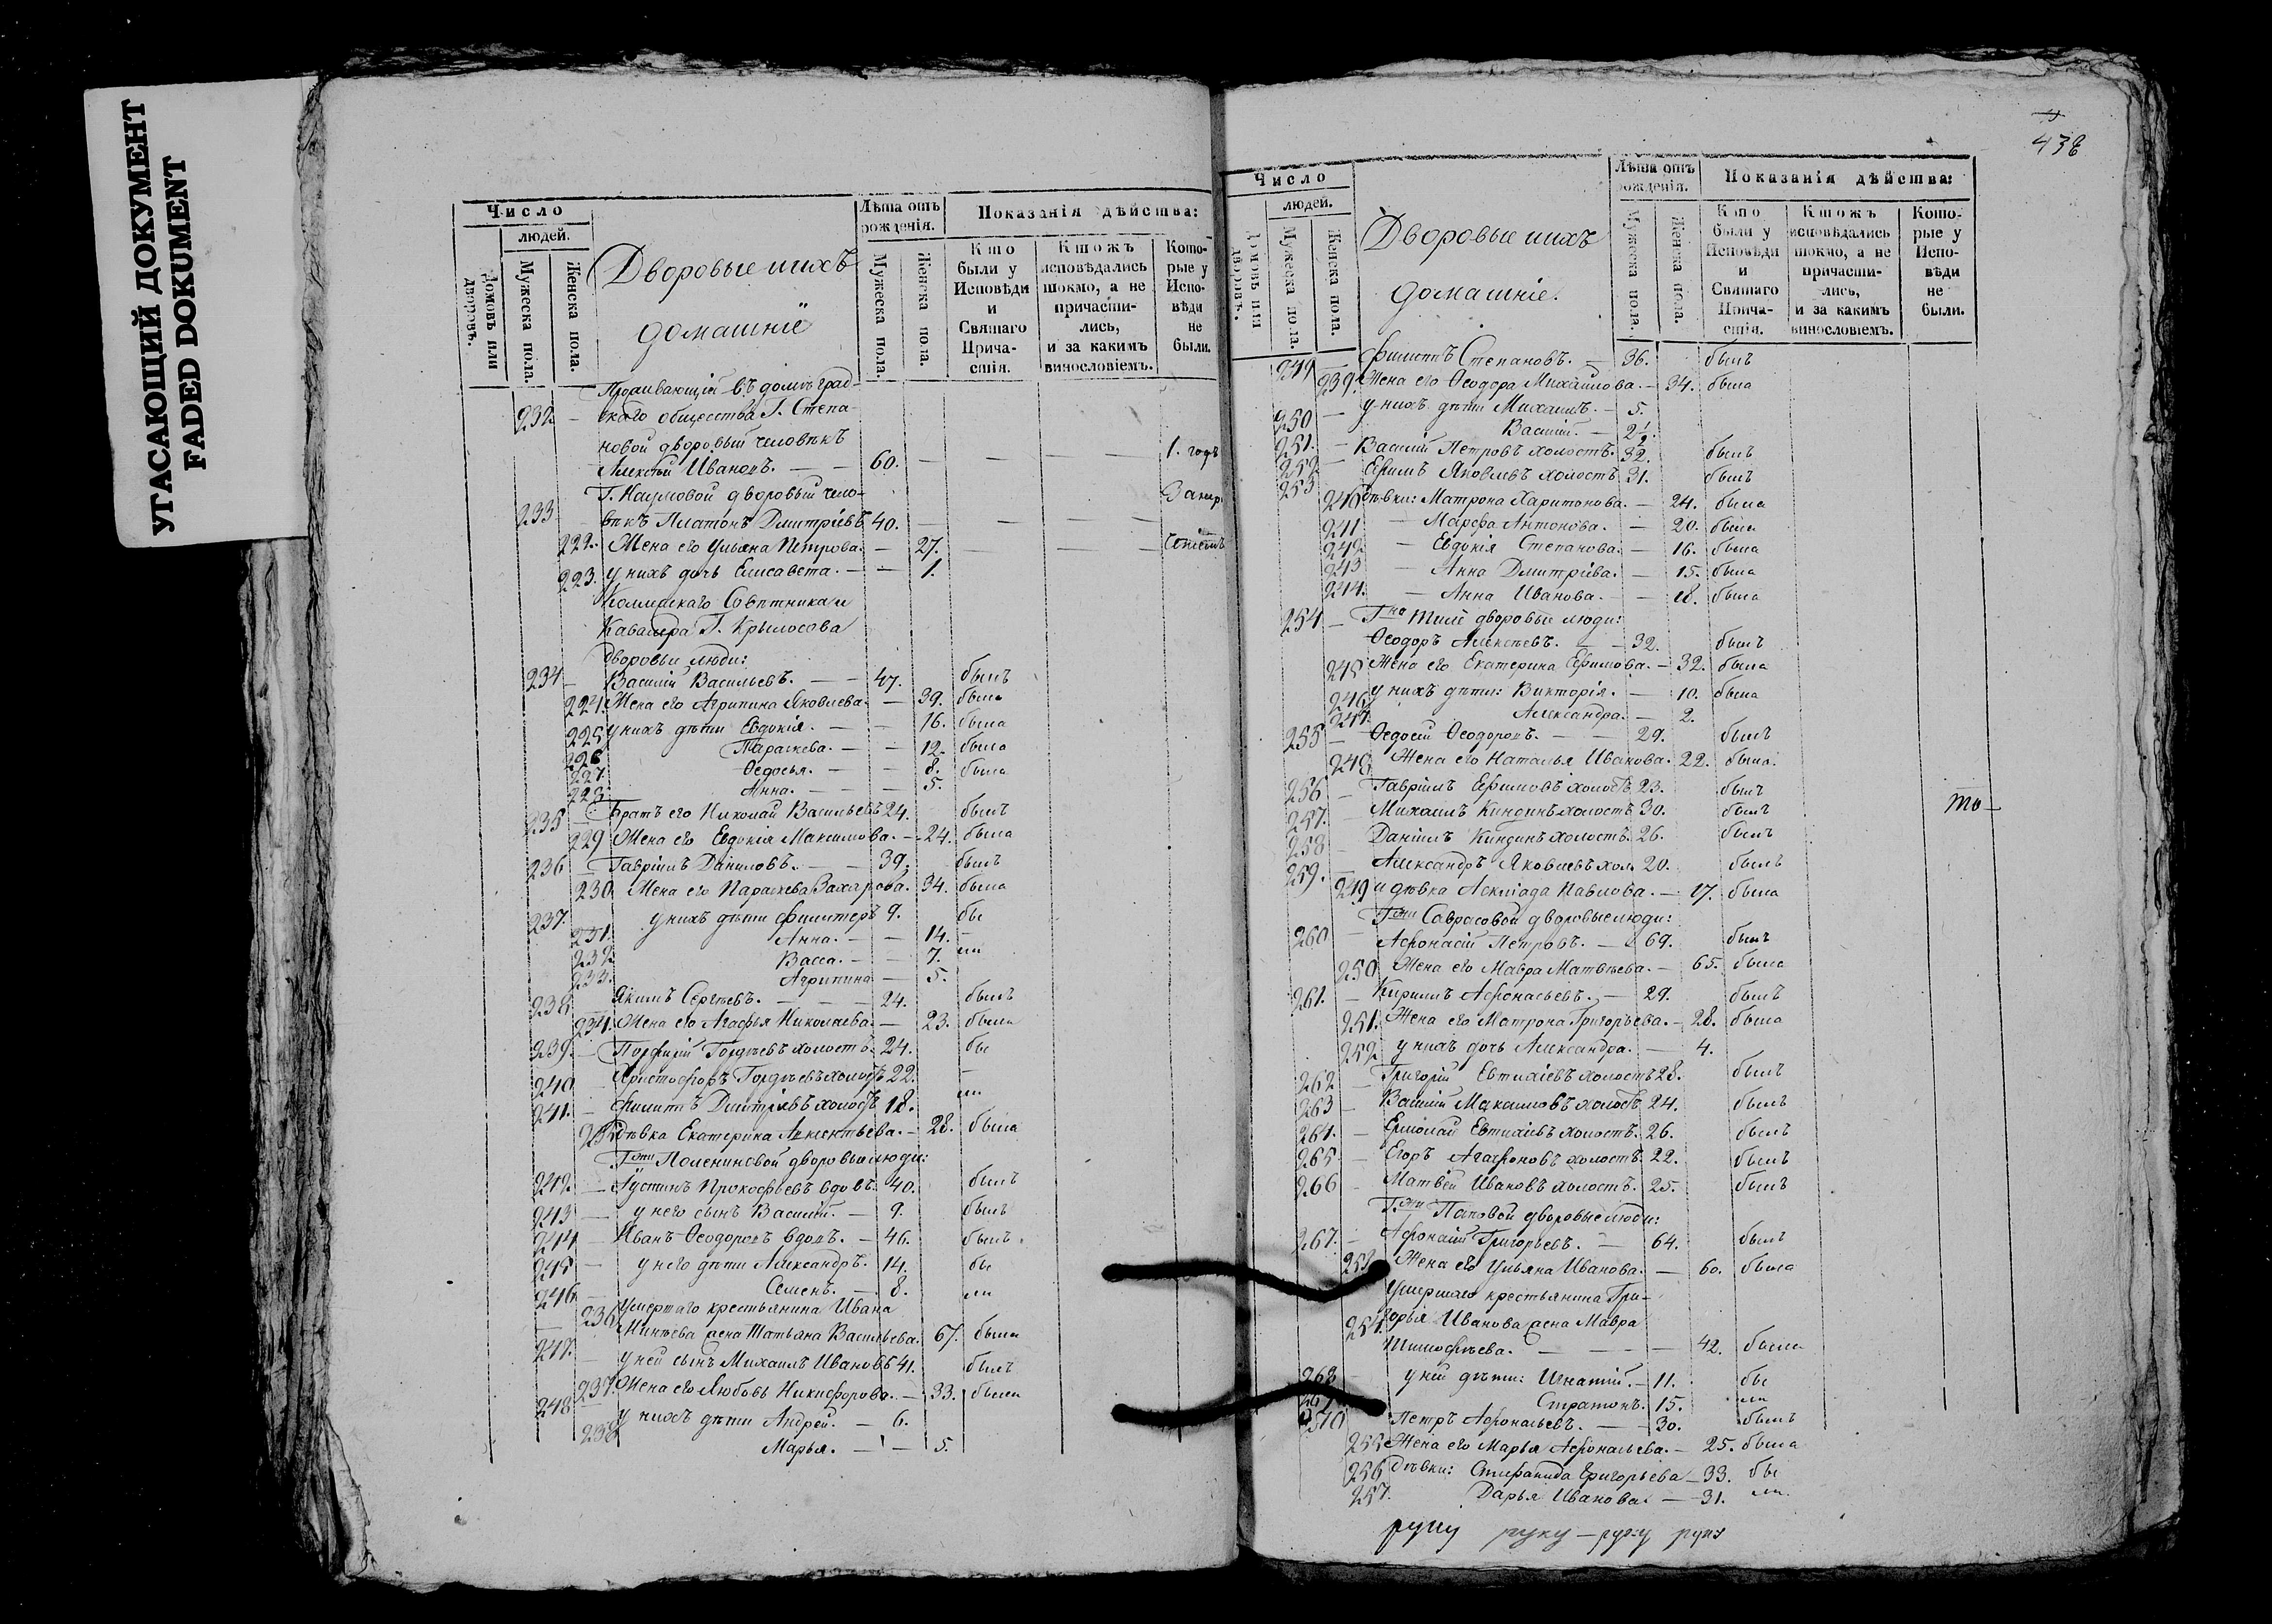 УГАСАЮЩИЙ ДОКУМЕНТ
FADED DOKUMENT
Число
людей.
Домовъ или дворовъ.
Мужеска пола.
Женска пола.
Дворовые ихъ
домашніе
Лѣта отъ рожденія.
Мужеска пола.
Женска пола.
Показанія дѣйства:
Кто были у Исповѣди и Святаго Причастія.
Ктожъ исповѣдались токмо, а не причастились, и за какимъ винословіемъ.
Которые у Исповѣди не были.
Проживающій въ домѣ град-
232 — скаго общества Г. Степа-
новой дворовый человѣкъ
Алексѣй Ивановъ. — — 60. — — — 1. годъ
Г. Наумовой дворовый чело-
233 вѣкъ Платонъ Дмитріевъ 40. — — —
222. Жена его Ульяна Петрова. — 27. — —
223. у нихъ дочь Елисавета. — — 1.
Коллежскаго Совѣтника и
Кавалера Г. Крылосова
дворовые люди:
234 — Василій Васильевъ. — — 47. былъ
224. Жена его Агрипина Яковлева. — 39. была
225 у нихъ дѣти Евдокія. — — 16. была
226 Параскева. — — 12. была
227 Ѳедосья. — — 8. была
228. Анна. — — — 5.
235 — Братъ его Николай Васильевъ 24. былъ
229 Жена его Евдокія Максимова. — 24. была
236 — Гавріилъ Даниловъ. — — 39. былъ
230 Жена его Параскева Захарова. 34. была
237. у нихъ дѣти Филитеръ 9. бы
231. Анна. — — 14. —
232 Васса. — — 7. ли
233. Агрипина — 5.
238 Якимъ Сергѣевъ. — — — 24. былъ
234. Жена его Агафья Николаева. — 23. была
239. — Порфирій Гордѣевъ холостъ. 24. бы
240 Христофоръ Гордѣевъ холостъ 22. —
241. — Филиппъ Дмитріевъ холостъ 18. ли
235 дѣвка Екатерина Леонтьева. — 28. была
дворовые люди:
242. — Іустинъ Прокофьевъ вдовъ. 40. былъ
243 — у него сынъ Василій. — 9. былъ
244 — Иванъ Ѳеодоровъ вдовъ. — 46. былъ.
245 — у него дѣти Александръ. 14. бы
246. — Семенъ. — 8. ли
236 Умершаго крестьянина Ивана
жена Татьяна Васильева. 67. была
247. — у ней сынъ Михаилъ Ивановъ 41. былъ
237. Жена его Любовь Никифорова. — 33. была
248 у нихъ дѣти Андрей. — 6.
238 Марья. — — 5.
438
Число
людей.
Домовъ или дворовъ.
Мужеска пола.
Женска пола.
Дворовые ихъ
домашніе.
Лѣта отъ рожденія.
Мужеска пола.
Женска пола.
Показанія дѣйства:
Кто были у Исповѣди и Святаго Причастія.
Ктожъ исповѣдались токмо, а не причастились, и за какимъ винословіемъ.
Которые у Исповѣди не были.
249 Филиппъ Степановъ. — 36. былъ
239. Жена его Ѳеодора Михайлова. — 34. была
250 — у нихъ дѣти Михаилъ. — 5.
251. — Василій. — 2½.
252 — Василій Петровъ холостъ. 32. былъ
253 Ефимъ Яковлевъ холостъ 31. былъ
240 дѣвки: Матрона Харитонова. — 24. была
241 — Марфа Антонова. — 20. была
242 — Евдокія Степанова. — 16. была
243 — Анна Дмитріева. — 15. была
244. — Анна Иванова. — 18. была
254 — дворовые люди:
Ѳеодоръ Алексѣевъ. — — 32. былъ
245 Жена его Екатерина Ефимова. — 32. была
246 у нихъ дѣти: Викторія. — 10. была
247. Александра. — 2.
255 — Ѳедосій Ѳеодоровъ. — — 29. былъ
248 Жена его Наталья Иванова. 22. была.
256 — Гавріилъ Ефимовъ холостъ 23. былъ
257. — Михаилъ Киндинъ холостъ 30. былъ
258 — Даніилъ Киндинъ холостъ. 26. былъ
259. — Александръ Яковлевъ хол. 20. былъ
249 и дѣвка Павлова. — 17. была
Саврасовой дворовые люди:
260 — Афонасій Петровъ. — 69. былъ
250 Жена его Мавра Матвѣева. — 65. была
261. — Кириллъ Афонасьевъ. — 29. былъ
251. Жена его Матрона Григорьева. — 28. была
252 у нихъ дочь Александра. — 4.
262 — Григорій Евтихіевъ холостъ 28. былъ
263 — Василій Максимовъ холостъ 24. былъ
264. — Ермолай Евтихіевъ холостъ. 26. былъ
265 — Егоръ Агафоновъ холостъ. 22. былъ
266 — Матвей Ивановъ холостъ. 25. былъ
Поповой дворовые люди:
267. — Афонасій Григорьевъ. — 64. былъ
253 Жена его Ульяна Иванова. — 60. была
Умершаго крестьянина Гри-
254. горія Иванова жена Мавра
Тимофѣева. — — — 42. была
268 — у ней дѣти: Игнатій. — 11. бы
269 Стратонъ. 15. ли
270 Петръ Афонасьевъ. — 30. былъ
255 Жена его Марья Афонасьева. — 25. была
256 дѣвки: Стефанида Григорьева — 33. бы
257. Дарья Иванова. — 31. ли.
то —
руку руку — руку руку